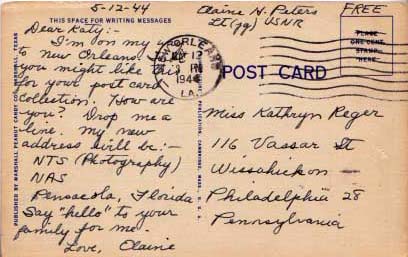 5-12-44
THIS SPACE FOR WRITING MESSAGES
Dear Katy:-
I'm on my way
to New Orleans!
you might like this
for your post card
collection. How are
you? Drop me a
line. My new
address will be:-
NTS (Photography)
NAS
Pensacola, Florida
Say "hello" to your
family for me.
Love, Elaine
PUBLISHED BY MARSHALL PEANUT CANDY CO., MARSHALL, TEXAS
Elaine H. Peters
LT (jg) USNR
FREE
NEW ORLEANS
MAY 13
PM
1944
LA.
PLACE
ONE CENT
STAMP
HERE
POST CARD
Miss Kathryn Reger
116 Vassar St
Wissahickon -
Philadelphia 28
Pennsylvania